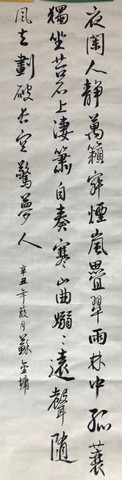 夜闌人靜萬籟寂煙嵐疊翠雨林中孤蓑
獨坐苔石上淒簫自奏寒山曲嫋〻遠聲隨
風去劃破長空驚夢人
辛丑年葭月蘇金墉